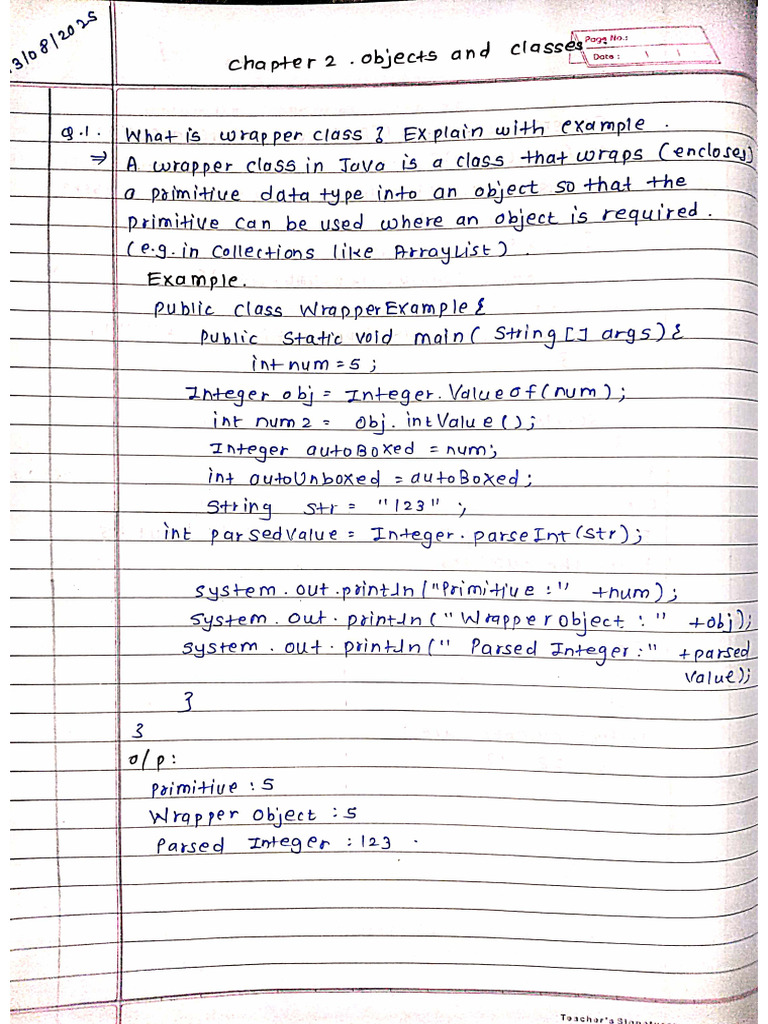 .3/08/2025
Chapter 2 . objects and classes
Page No.:
Date :
Q.1. What is wrapper class ? Explain with example .
⇒ A wrapper class in Java is a class that wraps (encloses)
a primitive data type into an object so that the
primitive can be used where an object is required .
(e.g. in Collections like ArrayList) .
Example.
public class WrapperExample {
public static void main( String [] args) {
int num = 5 ;
Integer obj = Integer.ValueOf(num);
int num2 = obj. intValue ();
Integer autoBoxed = num;
int autoUnboxed = autoBoxed;
String str = "123" ;
int parsedValue = Integer. parseInt (str);
system . out .println ("Primitive :" +num);
system . out . println (" Wrapper object : " +obj);
system . out . println (" Parsed Integer :" +parsed
value);
}
}
o/p:
primitive : 5
Wrapper Object : 5
Parsed Integer : 123 .